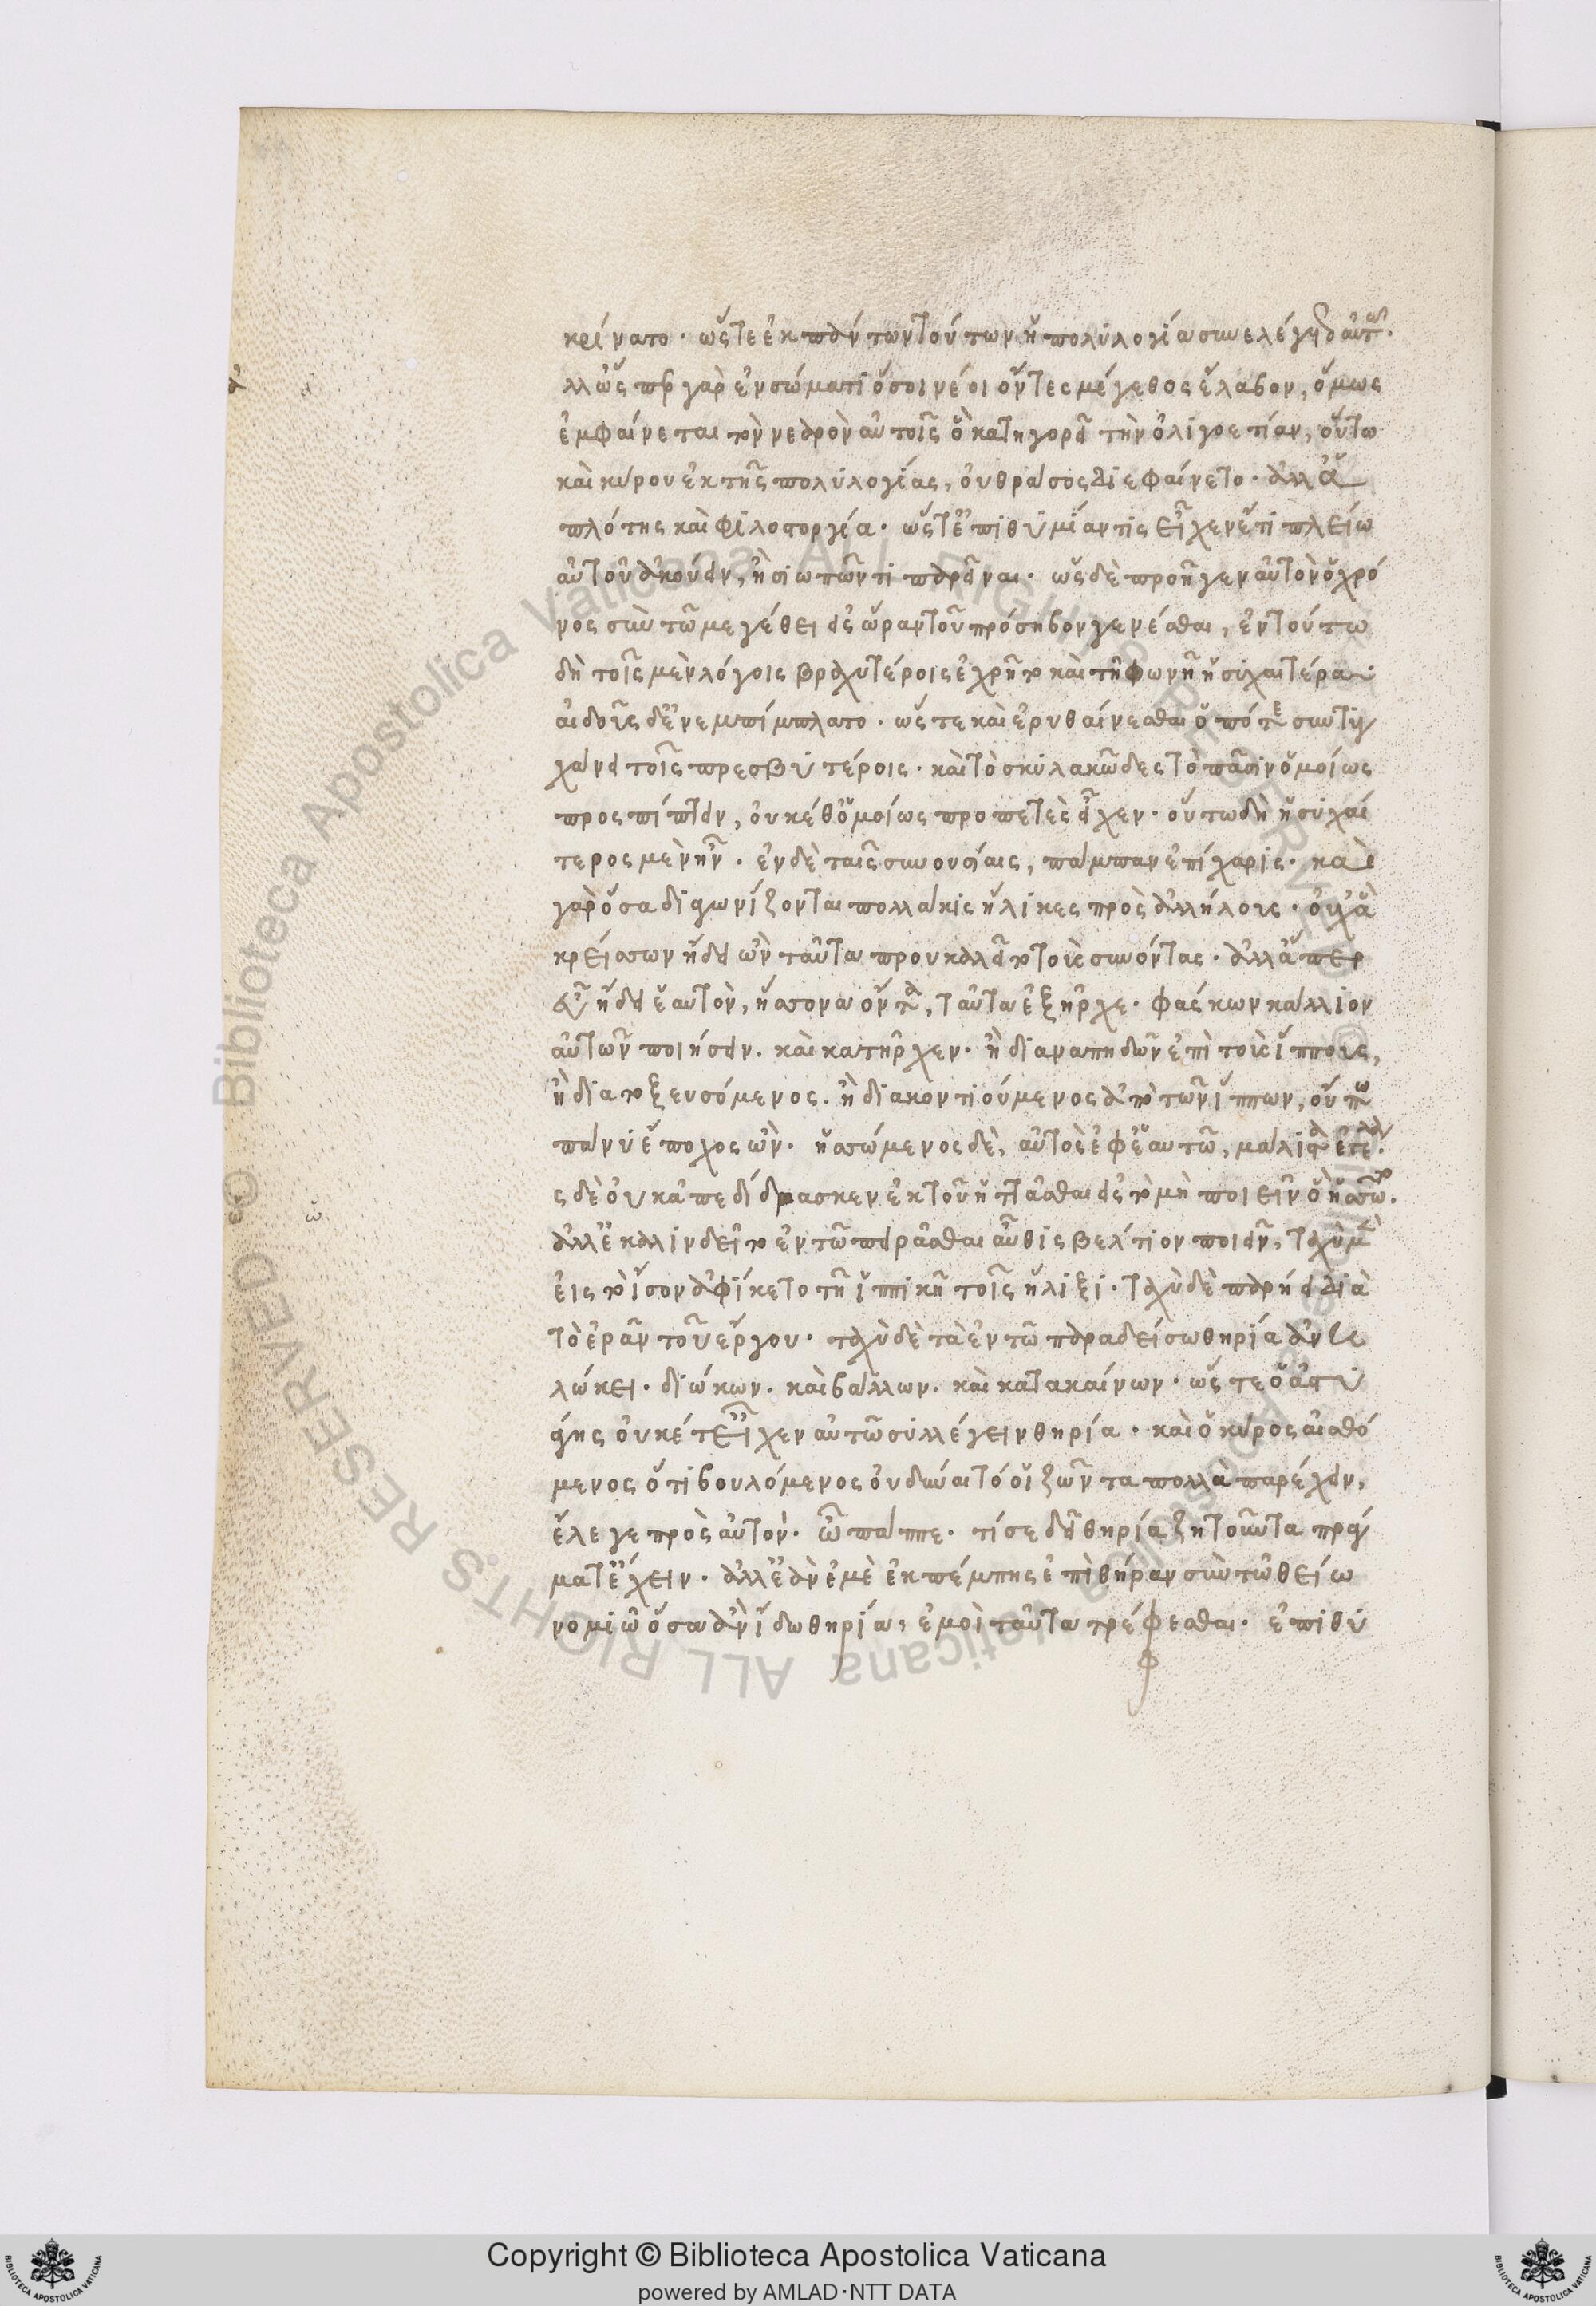 κρίνατο· ὥστε ἐκ πάντων τούτων ἡ πολυλογία συνελέγετο αὐτῶ·
λλ ὥσπερ γὰρ ἐν σώματι ὅσοι νέοι ὄντες μέγεθος ἔλαβον, ὅμως
ἐμφαίνεται τὸ νεαρὸν αὐτοῖς ὃ κατηγορεῖ τὴν ὀλιγοετίαν, οὕτω
καὶ κύρου ἐκ τῆς πολυλογίας, οὐ θράσος διεφαίνετο· ἀλλ ἁ
πλότης καὶ φιλοστοργία· ὥστ ἐπιθύμίαν τις εἶχεν ἔτι πλείω
αὐτοῦ ἀκούειν, ἢ σιωπῶντι παρεῖναι· ὡς δὲ προῆγεν αὐτὸν ὁ χρό
νος σὺν τῶ μεγέθει εἰς ὥραν τοῦ πρόσηβον γενέσθαι, ἐν τούτω
δὴ τοῖς μὲν λόγοις βραχυτέροις ἐχρῆτο καὶ τῆ φωνῆ ἡσυχαιτέρα·
αἰδοῦς δ ἐνεμπίμπλατο· ὥστε καὶ ἐρυθαίνεσθαι ὁπότε συντυγ
χάνει τοῖς πρεσβυτέροις· καὶ τὸ σκυλακῶδες τὸ πᾶσιν ὁμοίως
προσπίπτειν, οὐκέθ ὁμοίως προπετὲς εἶχεν· οὕτω δὴ ἡσυχαί
τερος μὲν ἦν· ἐν δὲ ταῖς συνουσίαις, πάμπαν ἐπίχαρις· καὶ
γὰρ ὅσα διαγωνίζονται πολλάκις ἥλικες πρὸς ἀλλήλους· οὐχ ἃ
κρείσσων ἤδει ὢν ταῦτα προυκαλεῖτο τοὺς συνόντας· ἀλλ ἅπερ
εὖ ἤδει ἑαυτὸν, ἥσσονα ὄντα, ταῦτα ἐξῆρχε· φάσκων κάλλιον
αὐτῶν ποιήσειν· καὶ κατῆρχεν· ἢ διαναπηδῶν ἐπὶ τοὺς ἵππους,
ἢ διατοξευσόμενος· ἢ διακοντιούμενος ἀπὸ τῶν ἵππων, οὔπω
πάνυ ἔποχος ὤν· ἡσσώμενος δὲ, αὐτὸς ἐφ ἑαυτῶ, μάλιστα ἐγέλα·
ς δὲ οὐκ ἀπεδίδρασκεν ἐκ τοῦ ἡττᾶσθαι εἰς τὸ μὴ ποιεῖν ὃ ἡσσῶτο·
ἀλλ ἐκαλινδεῖτο ἐν τῶ πειρᾶσθαι αὖθις βέλτιον ποιεῖν, ταχὺ μὲν
εἰς τὸ ἴσον ἀφίκετο τῆ ἱππικῆ τοῖς ἥλιξι· ταχὺ δὲ παρήει διὰ
τὸ ἐρᾶν τοῦ ἔργου· ταχὺ δὲ τὰ ἐν τῶ παραδείσω θηρία ἀνα
λώκει· διώκων· καὶ βάλλων· καὶ κατακαίνων· ὥστε ὁ ἀστυ
άγης οὐκέτ εἶχεν αὐτῶ συλλέγειν θηρία· καὶ ὁ κῦρος αἰσθό
μενος ὅτι βουλόμενος οὐ δύναιτό οἱ ζῶντα πολλὰ παρέχειν,
ἔλεγε πρὸς αὐτόν· ὦ πάππε· τί σε δεῖ θηρία ζητοῦντα πράγ
ματ ἔχειν· ἀλλ ἐὰν ἐμὲ ἐκπέμπης ἐπὶ θήραν σὺν τῶ θείω
νομιῶ ὅσα ἂν ἴδω θηρία, ἐμοὶ ταῦτα τρέφεσθαι· ἐπιθυ